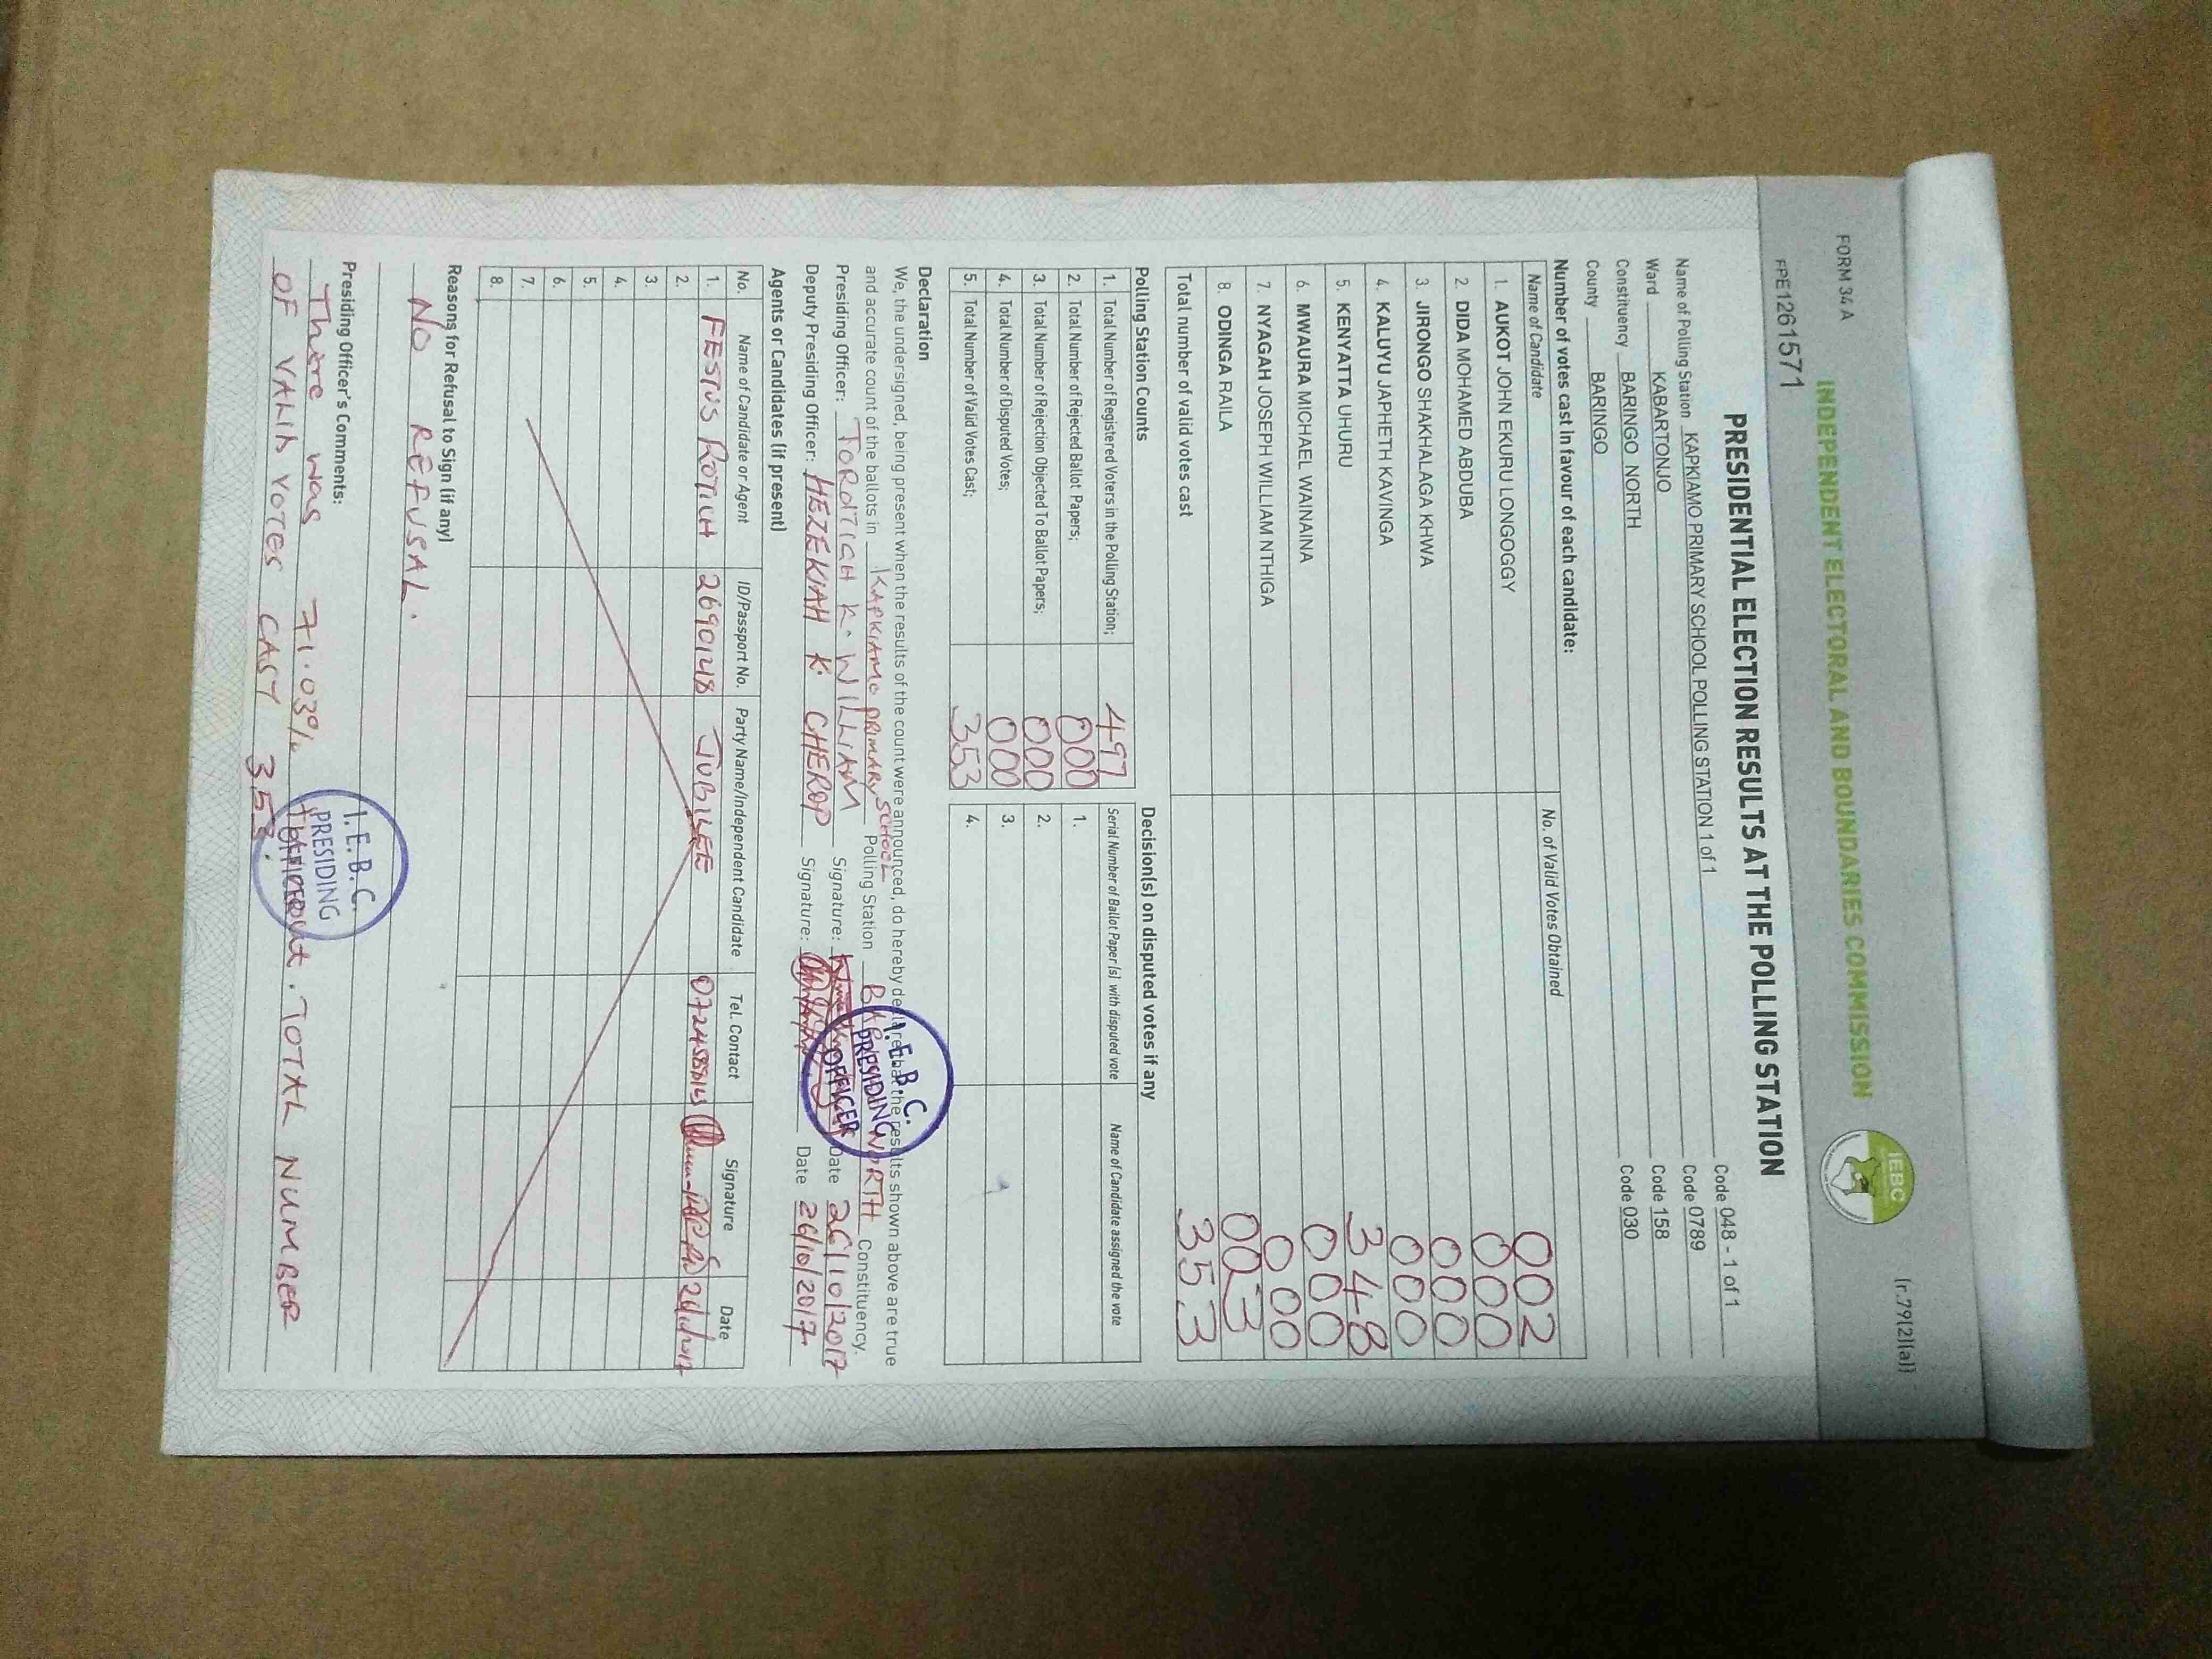 FORM 34 A
(r.79(2)(a))
INDEPENDENT ELECTORAL AND BOUNDARIES COMMISSION
IEBC
FPE1261571
PRESIDENTIAL ELECTION RESULTS AT THE POLLING STATION
Name of Polling Station KAPKIAMO PRIMARY SCHOOL POLLING STATION 1 of 1 Code 048 - 1 of 1
Ward KABARTONJO Code 0789
Constituency BARINGO NORTH Code 158
County BARINGO Code 030
Number of votes cast in favour of each candidate:
Name of Candidate No. of Valid Votes Obtained
1. AUKOT JOHN EKURU LONGOGGY 002
2. DIDA MOHAMED ABDUBA 000
3. JIRONGO SHAKHALAGA KHWA 000
4. KALUYU JAPHETH KAVINGA 000
5. KENYATTA UHURU 348
6. MWAURA MICHAEL WAINAINA 000
7. NYAGAH JOSEPH WILLIAM NTHIGA 000
8. ODINGA RAILA 003
Total number of valid votes cast 353
Polling Station Counts
1. Total Number of Registered Voters in the Polling Station; 497
2. Total Number of Rejected Ballot Papers; 000
3. Total Number of Rejection Objected To Ballot Papers; 000
4. Total Number of Disputed Votes; 000
5. Total Number of Valid Votes Cast; 353
Decision(s) on disputed votes if any
Serial Number of Ballot Paper (s) with disputed vote Name of Candidate assigned the vote
1.
2.
3.
4.
Declaration
We, the undersigned, being present when the results of the count were announced, do hereby declare that the results shown above are true
and accurate count of the ballots in KAPKIAMO PRIMARY SCHOOL Polling Station BARINGO NORTH Constituency.
Presiding Officer: TOROITICH K. WILLIAM Signature: Date 26/10/2017
Deputy Presiding Officer: HEZEKIAH K. CHEROP Signature: Date 26/10/2017
I.E.B.C.
PRESIDING
OFFICER
Agents or Candidates (if present)
No. Name of Candidate or Agent ID/Passport No. Party Name/Independent Candidate Tel. Contact Signature Date
1. FESTUS ROTICH 26901218 JUBILEE
2.
3.
4.
5.
6.
7.
8.
Reasons for Refusal to Sign (if any)
NO REFUSAL.
Presiding Officer's Comments:
There was 71.03% turnout. TOTAL NUMBER
OF VALID VOTES CAST 353.
I.E.B.C.
PRESIDING
OFFICER